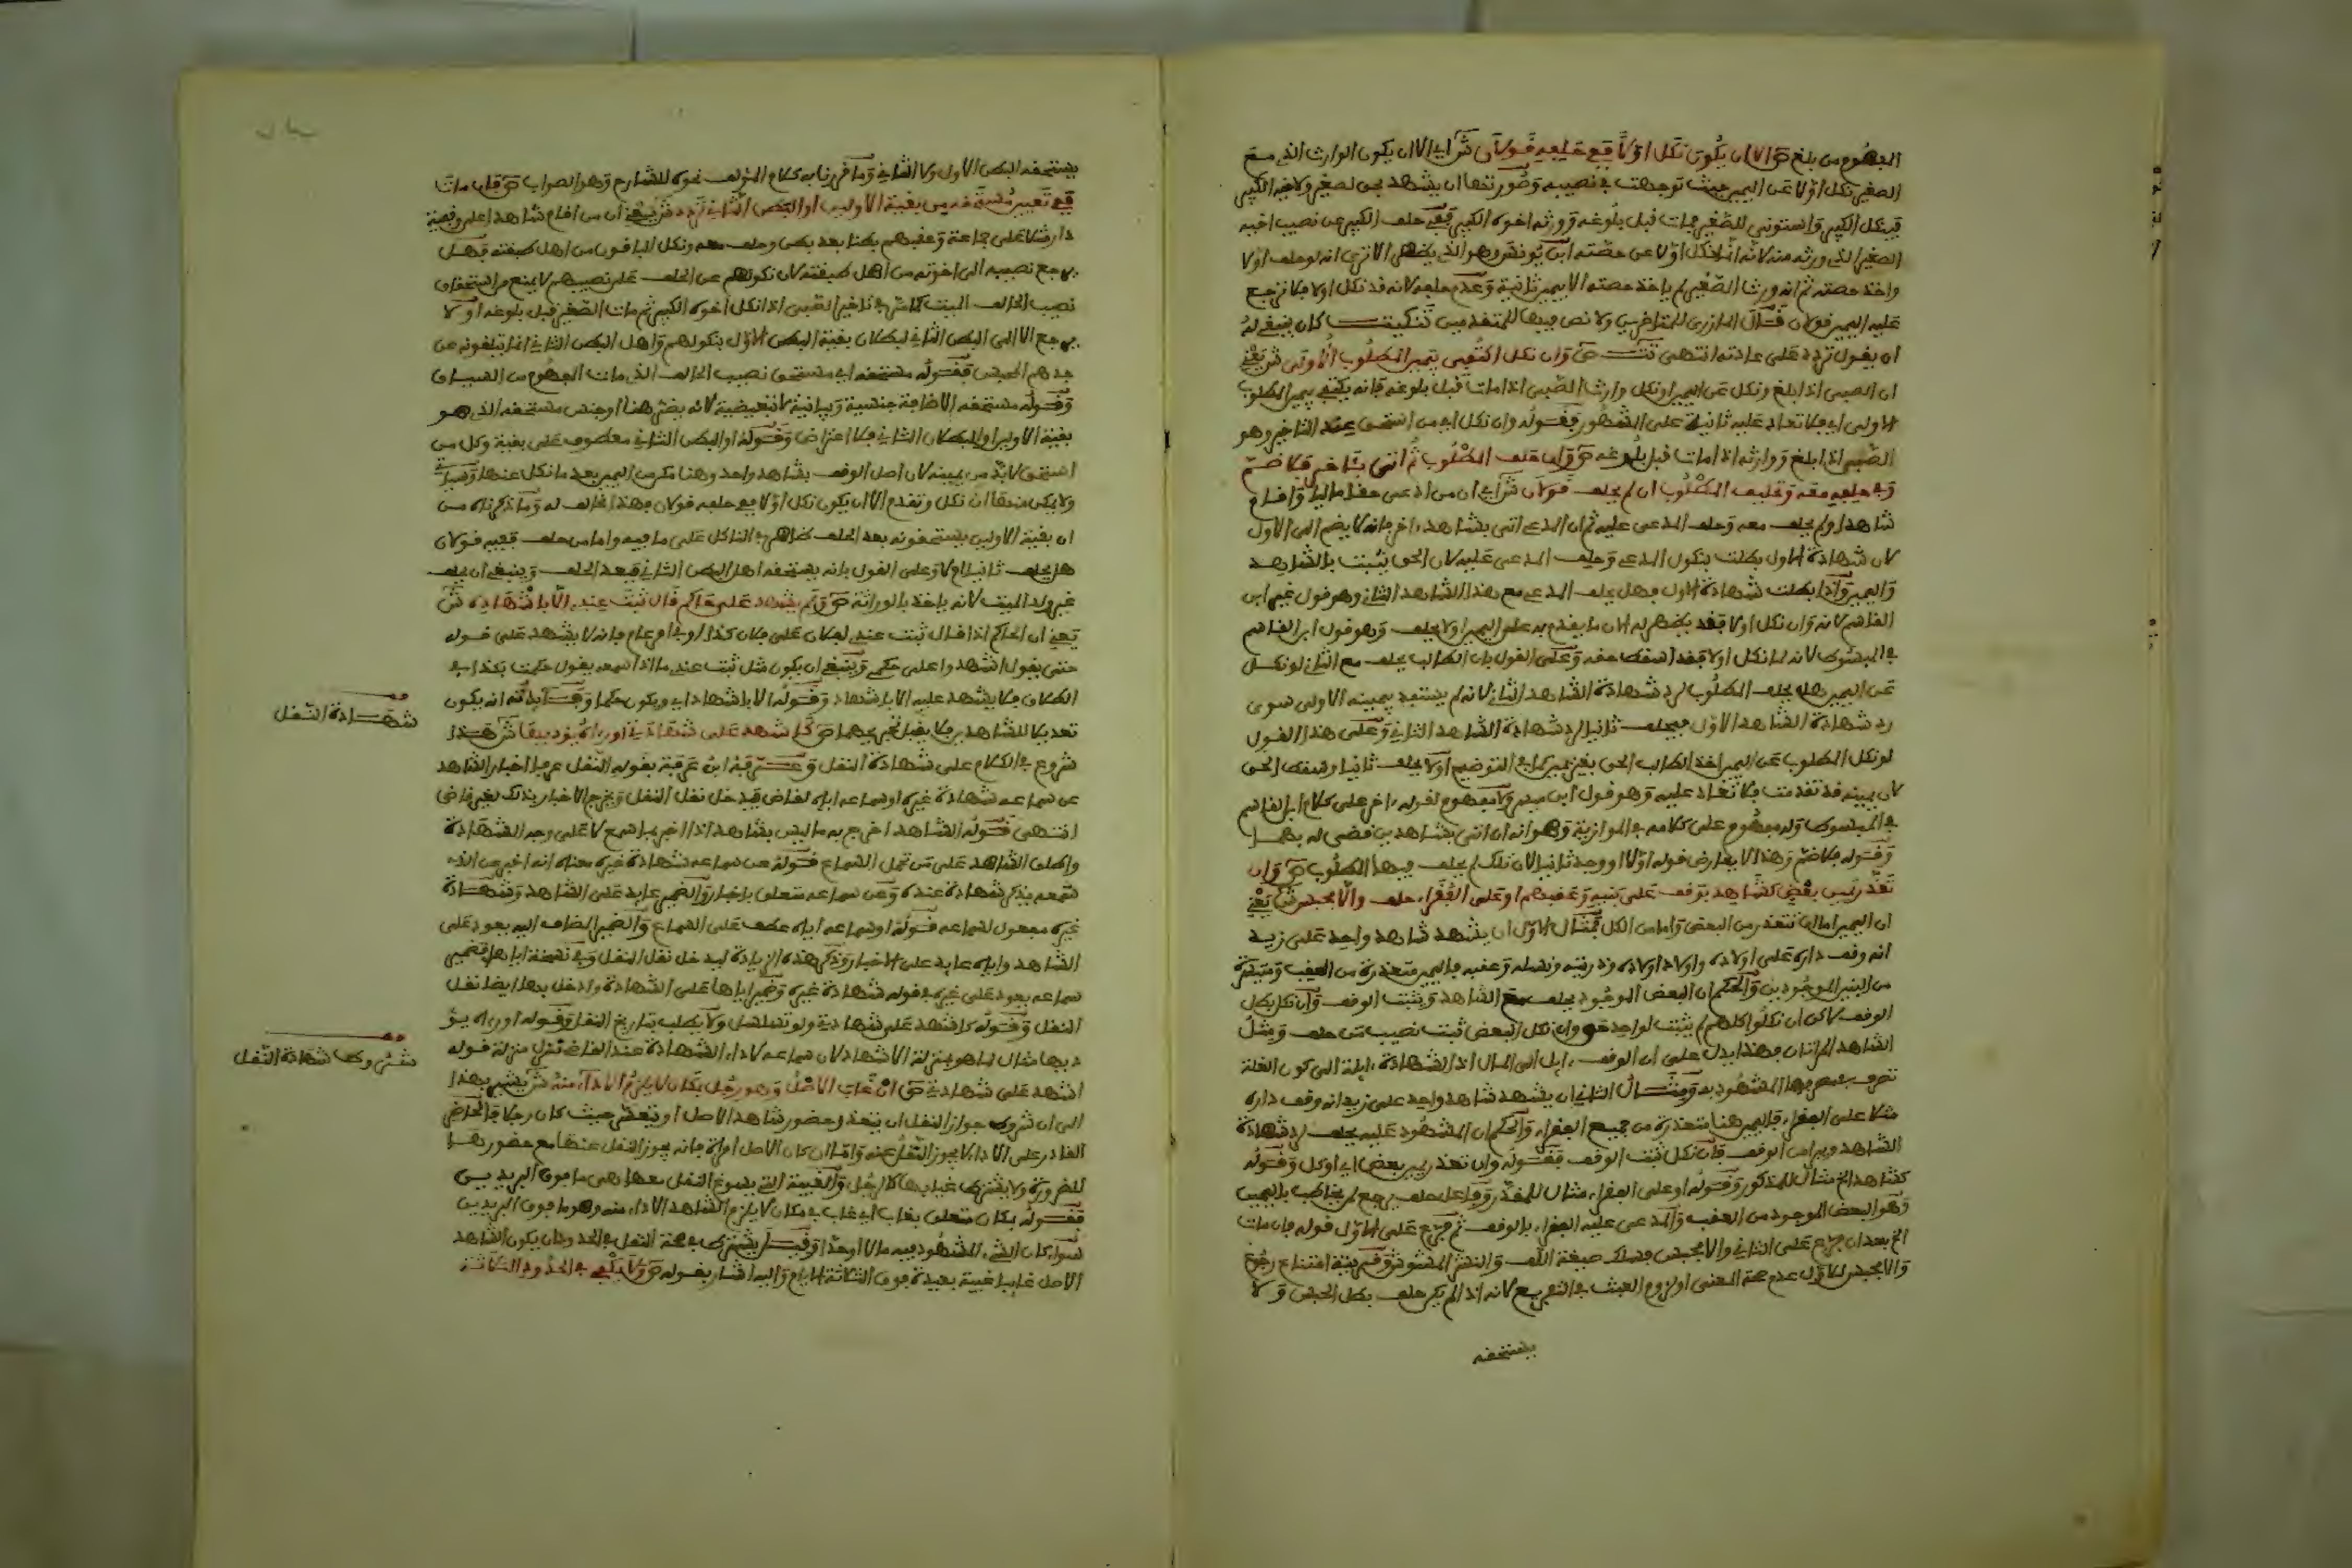 المفهوم من بلغ ص الا ان يكون نكل اولا ففي حلفه قولان ش اي الا ان يكون الوارث الذي معه
الصغير نكل اولا عن اليمين حيث توجهت في نصيبه وصورتها ان يشهد بحق لصغير ولاخيه الكبير
فينكل الكبير واستوني للصغير فمات قبل بلوغه وورثه اخوه الكبير ففي حلف الكبير عن نصيب اخيه
الصغير الذي ورثه منه لانه انما نكل اولا عن حصته ابن يونس وهو الذي يظهر الا ترى انه لو حلف اولا
واخذ حصته ثم انه ورث الصغير لم ياخذ حصته الا بيمين ثانية وعدم حلفه لانه قد نكل اولا فلا ترجع
عليه اليمين قولان قال المازري للمتاخرين ولا نص فيها للمتقدمين تنكيت كان ينبغي له
ان يقول تردد على عادته انتهى تت ص وان نكل اكتفي بيمين المطلوب الاولى ش يعني
ان الصبي اذا بلغ ونكل عن اليمين او نكل وارث الصبي اذا مات قبل بلوغه فانه يكتفي بيمين المطلوب
الاولى اي فلا تعاد عليه ثانية على المشهور فقوله وان نكل اي من استحق بعد التاخير وهو
الصبي اذا بلغ ووارثه اذا مات قبل بلوغه ص وان حلف المطلوب ثم اتى باخر فلا ضم
وفي حلفه معه وتحليف المطلوب ان لم يحلف قولان ش اي ان من ادعى حقا ماليا واقام
شاهدا ولم يحلف معه وحلف المدعى عليه ثم ان المدعي اتى بشاهد اخر فانه لا يضم الى الاول
لان شهادة الاول بطلت بنكول المدعي وحلف المدعى عليه لان الحق يثبت بالشاهد
واليمين واذا بطلت شهادة الاول فهل يحلف المدعي مع هذا الشاهد الثاني وهو قول غير ابن
القاسم لانه وان نكل اولا فقد يظهر له الان ما يقدم به على اليمين او لا يحلف وهو قول ابن القاسم
في المبسوط لانه لما نكل اولا فقد اسقط حقه وعلى القول بان الطالب يحلف مع الثاني لو نكل
عن اليمين هل يحلف المطلوب لرد شهادة الشاهد الثاني لانه لم يستفد بيمينه الاولى سوى
رد شهادة الشاهد الاول فيحلف ثانيا لرد شهادة الشاهد الثاني وعلى هذا القول
لو نكل المطلوب عن اليمين اخذ الطالب الحق بغير يمين كما في التوضيح او لا يحلف ثانيا وسقط الحق
لان يمينه قد تقدمت فلا تعاد عليه وهو قول ابن ميسر ولا مفهوم لقوله اخر على كلام ابن القاسم
في المبسوط وله مفهوم على كلامه في الموازية وهو انه ان اتى بشاهدين قضي له بهما
وقوله فلا ضم وهذا لا يعارض قوله اولا او وجد ثانيا لان تلك لم يحلف فيها المطلوب ص وان
تعذر يمين بعض كشاهد بوقف على بنيه وعقبهم او على الفقراء حلف والا فحبس ش يعني
ان اليمين اما ان تتعذر من البعض واما من الكل فمثال الاول ان يشهد شاهد واحد على زيد
انه وقف داره على اولاده واولاد اولاده وذريته ونسله وعقبه فاليمين متعذرة من العقب ومتيسرة
من البنين الموجودين والحكم ان البعض الموجود يحلف مع الشاهد ويثبت الوقف وان نكل بطل
الوقف لاكن ان نكلوا كلهم لم يثبت لواحد حق وان نكل البعض ثبت نصيب من حلف
تصرف
مثلا على الفقراء فاليمين هنا متعذرة من جميع الفقراء والحكم ان المشهود عليه يحلف لرد شهادة
الشاهد ويبرا من الوقف فان نكل ثبت الوقف فقوله وان تعذر يمين بعض اي او كل وقوله
كشاهد الخ مثال للمذكور وقوله او على الفقراء مثال للمقدر وفاعل حلف يرجع لم يخاطب باليمين
وهو البعض الموجود من العقب والمدعى عليه الفقراء بالوقف ثم فرع على الاول قوله فان مات
الخ بعد ان فرع على الثاني والا فحبس فسلك صيغة اللف والنشر المشوش وقرينة امتناع رجوع
والا فحبس للاول عدم صحة المعنى او لزوم العبث في التفريع لانه اذا لم يكن حلف بطل الحبس ولا
يستحقه
يستحقه البطن الاول ولا الثاني وما قررنا به كلام المؤلف نحوه للشارح وهو الصواب ص فان مات
ففي تعيين مستحقه من بقية الاولين او البطن الثاني تردد ش يعني ان من اقام شاهدا على وقفية
دار مثلا على جماعة وعقبهم بطنا بعد بطن وحلف معه ونكل الباقون من اهل طبقته فهل
يرجع نصيبه الى اخوته من اهل طبقته لان نكولهم عن الحلف على نصيبهم لا يمنع من استحقاق
نصيب الحالف الميت كما مر في تاخير الصبي اذا نكل اخوه الكبير ثم مات الصغير قبل بلوغه او لا
يرجع الا الى البطن الثاني لبطلان بقية البطن الاول بنكولهم واهل البطن الثاني انما تلقونه عن
جدهم المحبس فقوله مستحقه اي مستحق نصيب الحالف الذي مات المفهوم من السياق
وقوله مستحقه الاضافة جنسية وبيانية لا تبعيضية لانه بعض هنا او جنس مستحقه الذي هو
بقية الاولين او البطن الثاني فلا اعتراض وقوله او البطن الثاني معطوف على بقية وكل من
استحق لا بد من يمينه لان اصل الوقف بشاهد واحد وهنا مكن من اليمين بعد ما نكل عنها
ان بقية الاولين يستحقونه بعد الحلف ظاهر في الناكل على ما فيه واما من حلف ففيه قولان
هل يحلف ثانيا ام لا وعلى القول بانه يستحقه اهل البطن الثاني فبعد الحلف وينبغي ان يحلف
غير ولد الميت لانه ياخذ بالوراثة ص ولم يشهد على حاكم قال ثبت عندي الا باشهاده ش
يعني ان الحاكم اذا قال ثبت عندي لفلان على فلان كذا فانه لا يشهد على قوله
حتى يقول اشهدوا على حكمي وينبغي ان يكون مثل ثبت عندي ما اذا سمعه يقول حكمت بكذا
فلا يشهد عليه الا باشهاد وقوله الا باشهاد اي ويكون حكما وفايدته انه يكون
تعديلا للشاهد فلا يقبل تجريحهما ص كاشهد على شهادتي او رآه يؤديها ش هذا
شروع في الكلام على شهادة النقل وعرفه ابن عرفة بقوله النقل عرفا اخبار الشاهد
عن سماعه شهادة غيره او سماعه اياه لقاض فيدخل نقل النقل ويخرج الاخبار بذلك لغير قاض
انتهى قوله الشاهد اخرج به ما ليس بشاهد اذا اخبر بما سمع لا على وجه الشهادة
واطلق الشاهد على من تحمل السماع قوله عن سماعه شهادة غيره معناه انه اخبر عن الذي
سمعه يذكر شهادة عنده وعن سماعه متعلق باخبار والضمير عايد على الشاهد وشهادة
غيره مفعول لسماعه قوله او سماعه اياه عطف على السماع والضمير المضاف اليه يعود على
الشاهد واياه عايد على الاخبار وذكر هذه الزيادة ليدخل نقل النقل وفي نسخة اياها فضمير
سماعه يعود على غيره في قوله شهادة غيره وضمير اياها على الشهادة وادخل بها ايضا نقل
النقل وقوله كاشهد على شهادتي ولو تسلسل ولا يطلب بتاريخ النقل وقوله او رآه يؤ
ديها مثال لما هو بمنزلة الاشهاد لان سماعه لاداء الشهادة عند القاضي تنزل منزلة قوله
اشهد على شهادتي ص ان غاب الاصل وهو رجل بمكان لا يلزم الاداء منه ش يشير بهذا
الى ان شروط جواز النقل ان يتعذر حضور شاهد الاصل او يتعسر حيث كان رجلا فالحاضر
القادر على الاداء لا يجوز النقل عنه واما ان كان الاصل امراة فانه يجوز النقل عنها مع حضورها
للضرورة ولا يشترط غيابها كالرجل والغيبة التي يسوغ النقل معها هي ما فوق البريدين
فقوله بمكان متعلق بغاب اي غاب في مكان لا يلزم الشاهد الاداء منه وهو ما فوق البريدين
سواء كان الشيء المشهود فيه مالا او حدا وقيل يشترط في صحة النقل في الحدود ان يكون الشاهد
الاصل غايبا غيبة بعيدة فوق الثلاثة الايام واليه اشار بقوله ص ولا يكفي في الحدود الثلاثة
شهادة النقل
شروط شهادة النقل